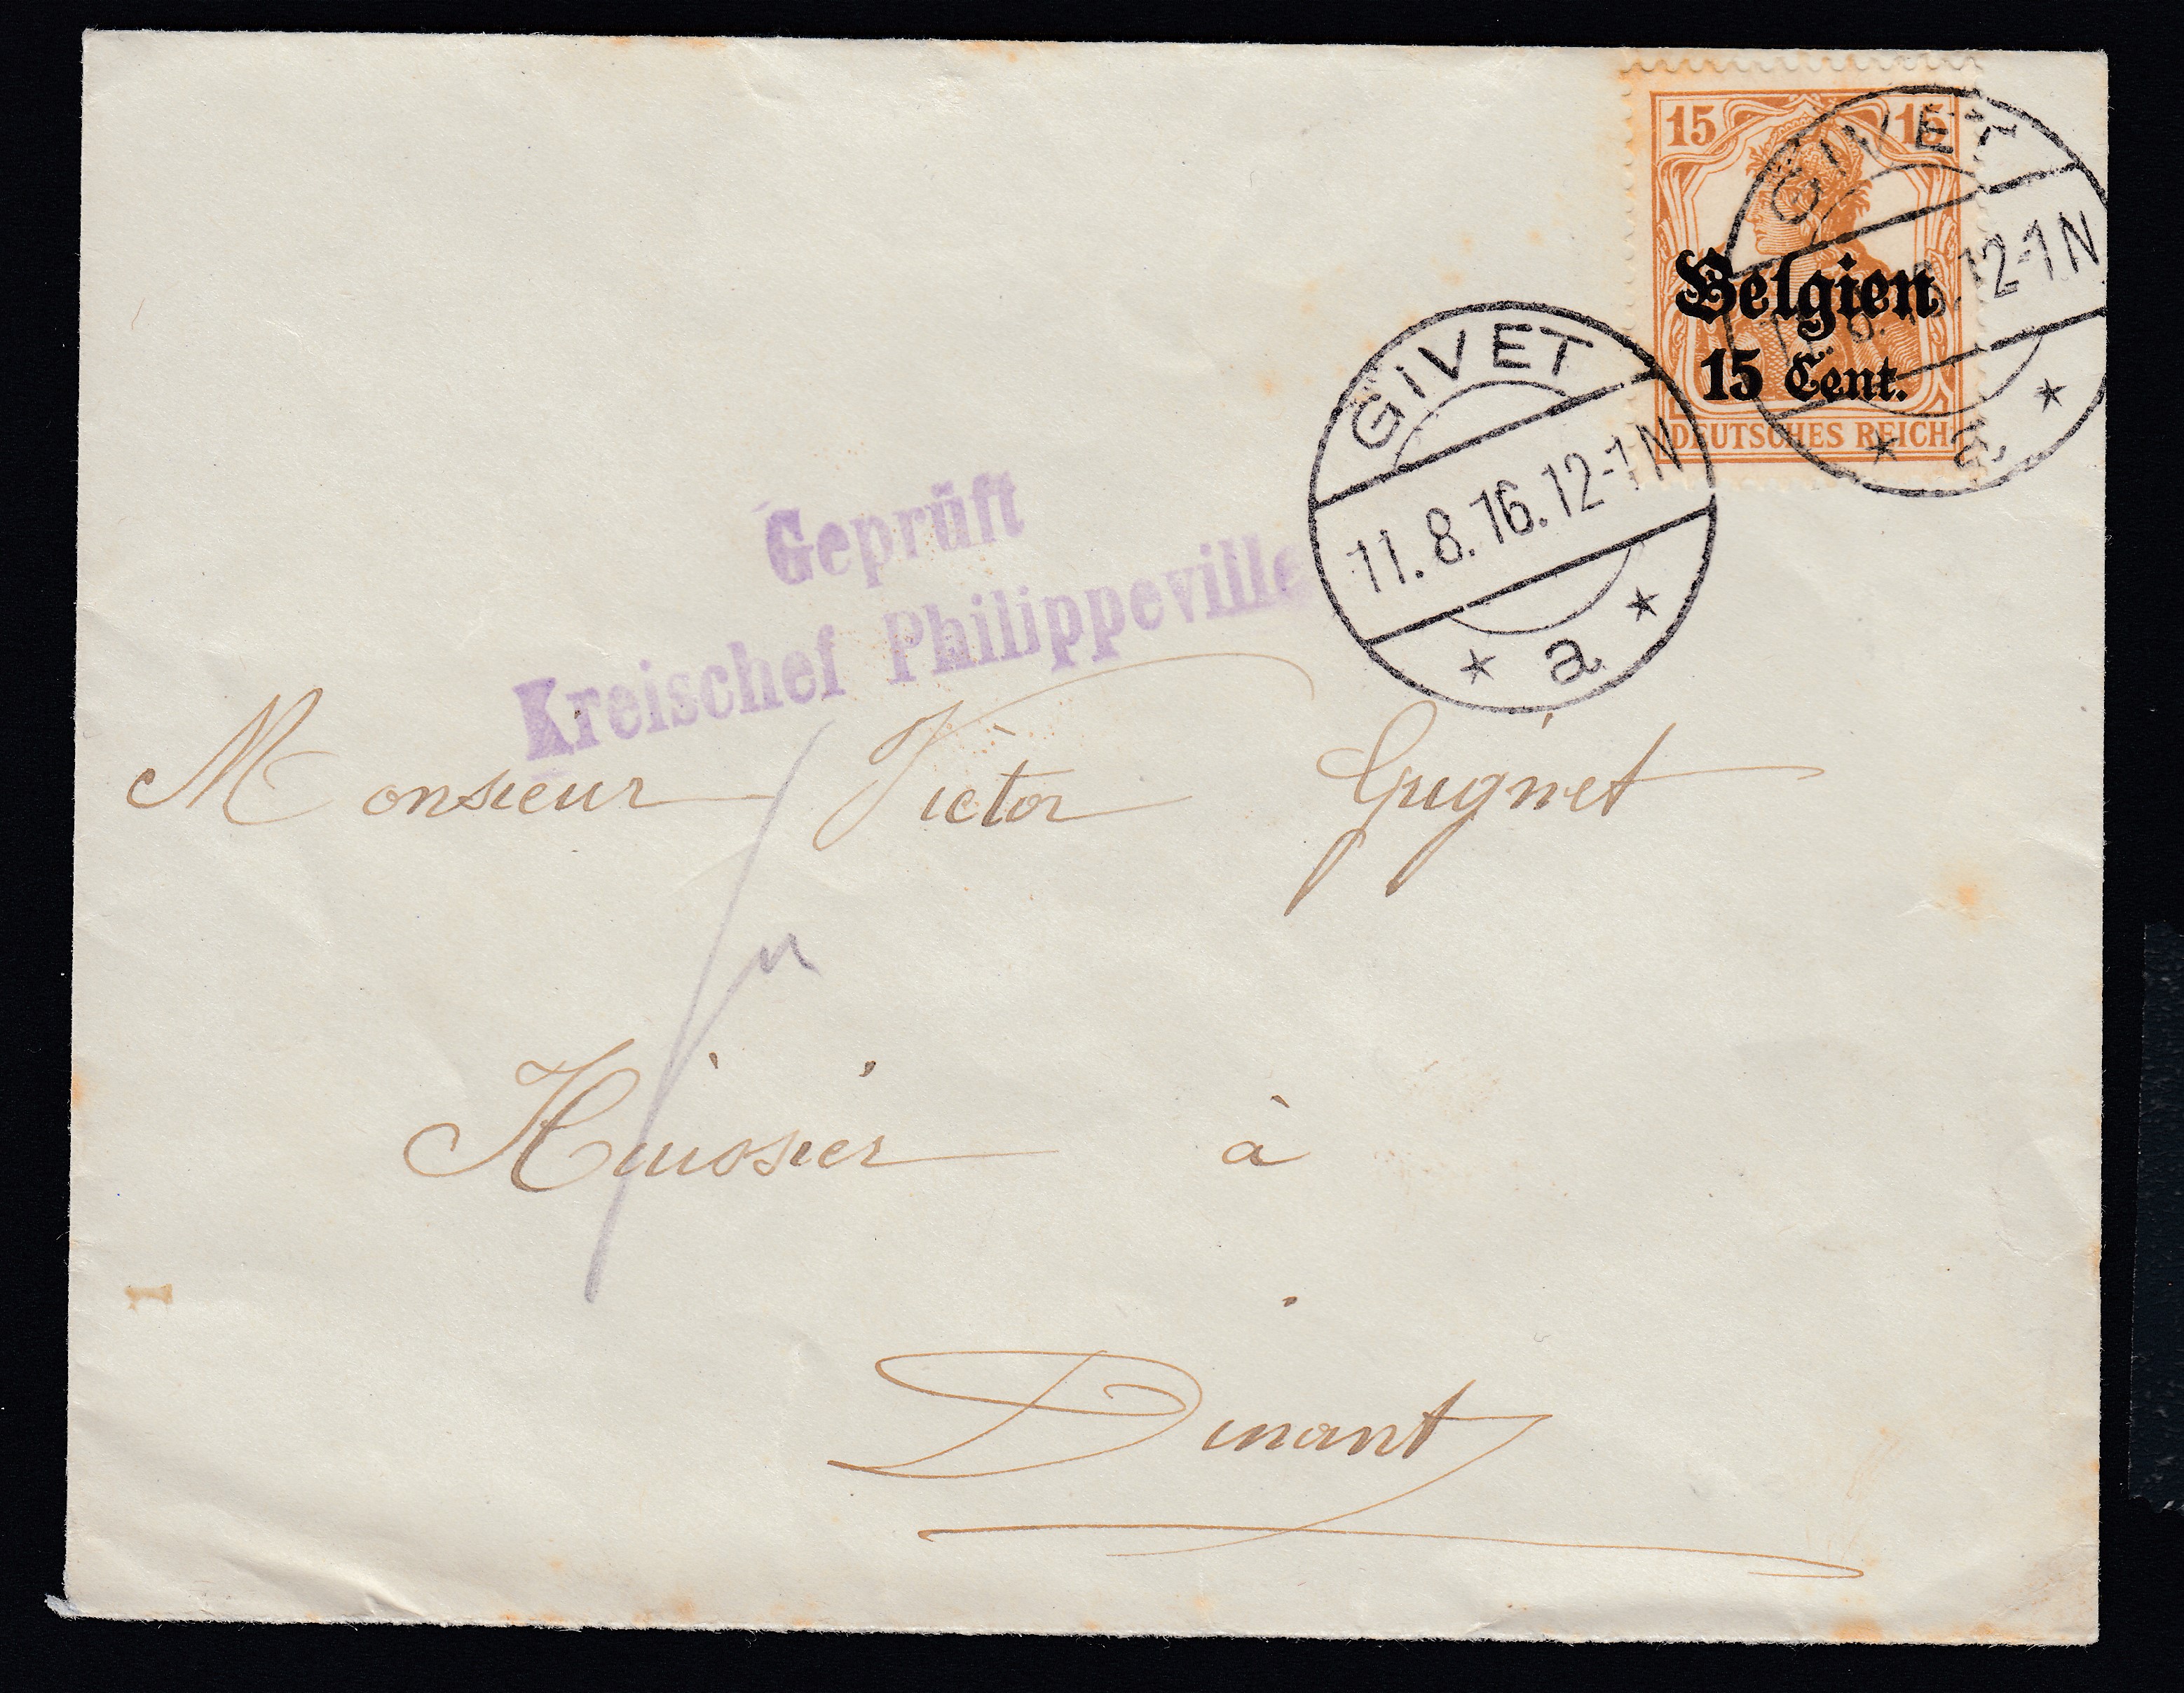 15 15
Belgien
15 Cent.
DEUTSCHES REICH
GIVET
12-1N
GIVET
11.8.16.12-1N
* a *
Geprüft
Kreischef Philippeville
Monsieur Victor Guignet
Huissier à
Dinant